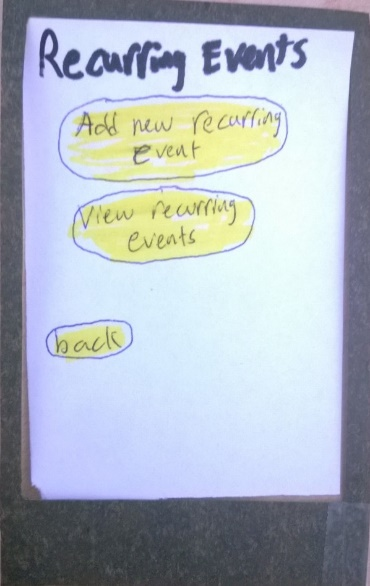 Recurring Events
Add new recurring
event
View recurring
events
back